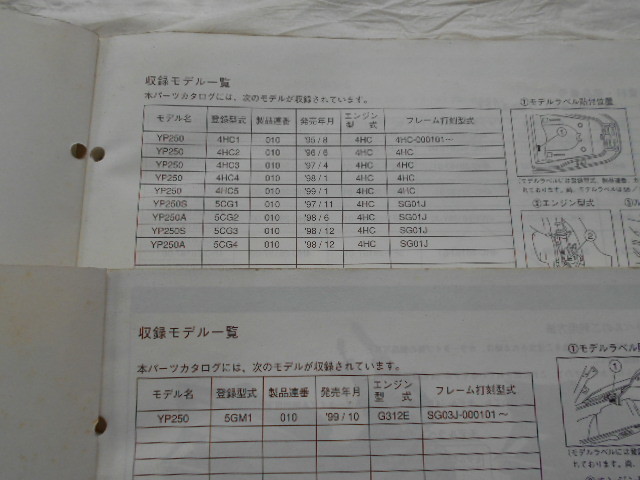 収録モデル一覧
本パーツカタログには、次のモデルが収録されています。
モデル名 登録型式 製品連番 発売年月 エンジン型式 フレーム打刻型式
YP250 4HC1 010 '95/8 4HC 4HC-000101~
YP250 4HC2 010 '96/6 4HC 4HC
YP250 4HC3 010 '97/4 4HC 4HC
YP250 4HC4 010 '98/1 4HC 4HC
YP250 4HC5 010 '99/1 4HC 4HC
YP250S 5CG1 010 '97/11 4HC SG01J
YP250A 5CG2 010 '98/6 4HC SG01J
YP250S 5CG3 010 '98/12 4HC SG01J
YP250A 5CG4 010 '98/12 4HC SG01J
①モデルラベル貼付位置
1
②エンジン型式
2
収録モデル一覧
本パーツカタログには、次のモデルが収録されています。
モデル名 登録型式 製品連番 発売年月 エンジン型式 フレーム打刻型式
YP250 5GM1 010 '99/10 G312E SG03J-000101~
①モデルラベル
1